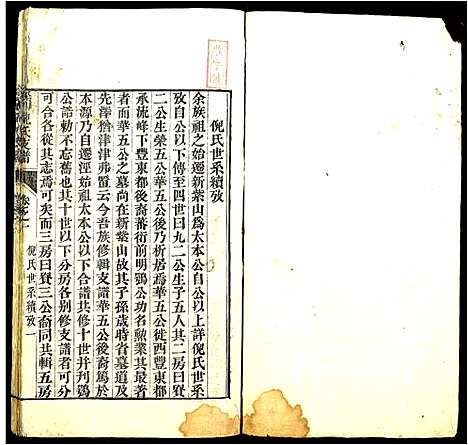 倪氏世系續攷
余族祖之始遷新紫山爲太本公自公以上詳倪氏世系
攷自公以下傳至四世曰九二公生子五人其二房曰賚
二公生榮五公華五公後乃析居爲華五公徙西豐東都
承流峰下豐東都後裔蕃衍前明鴞公功名勲業其最
者而華五公之墓尚在新紫山故其子孫歲時省墓道及
先澤猶津津弗置云今吾族修輯支譜華五公後裔篤於
本源乃自遷涇始祖太本公合譜共修十世并刊鴞
公誥勅不忘舊也其十世以下分房各別修支譜者可分
可合各從其志焉可矣而三房曰賚三公裔同共輯五房
卷之一
倪氏世系續攷 一